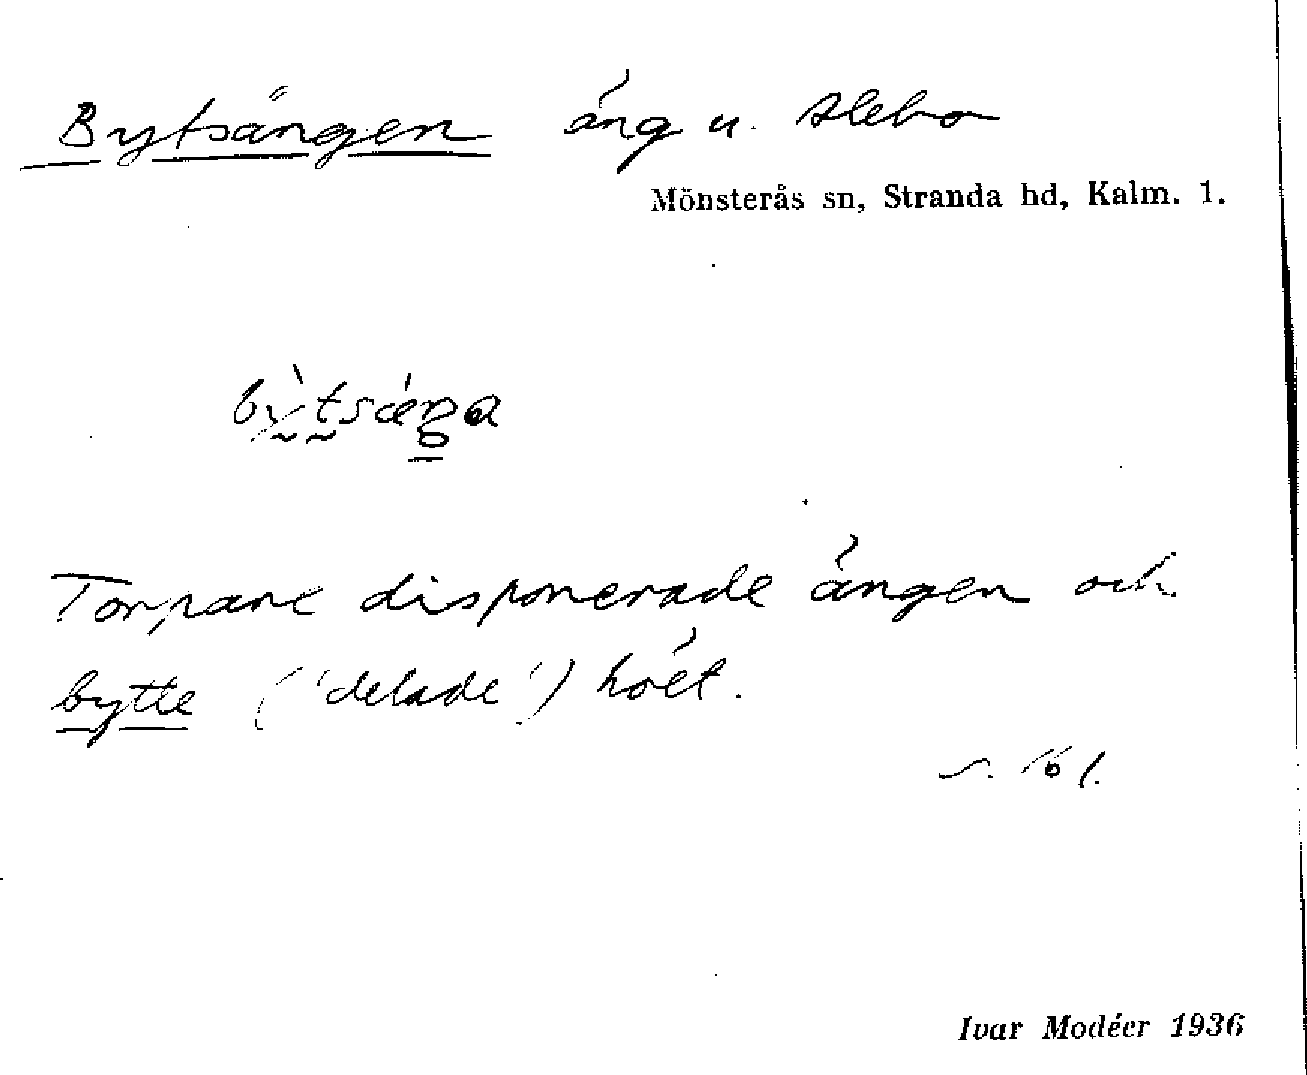 Bytsängen äng u. Alebo
Mönsterås sn, Stranda hd, Kalm. l.
Torpare disponerade ängen och
bytte ('delade') höet.
s. 161.
Ivar Modéer 1936